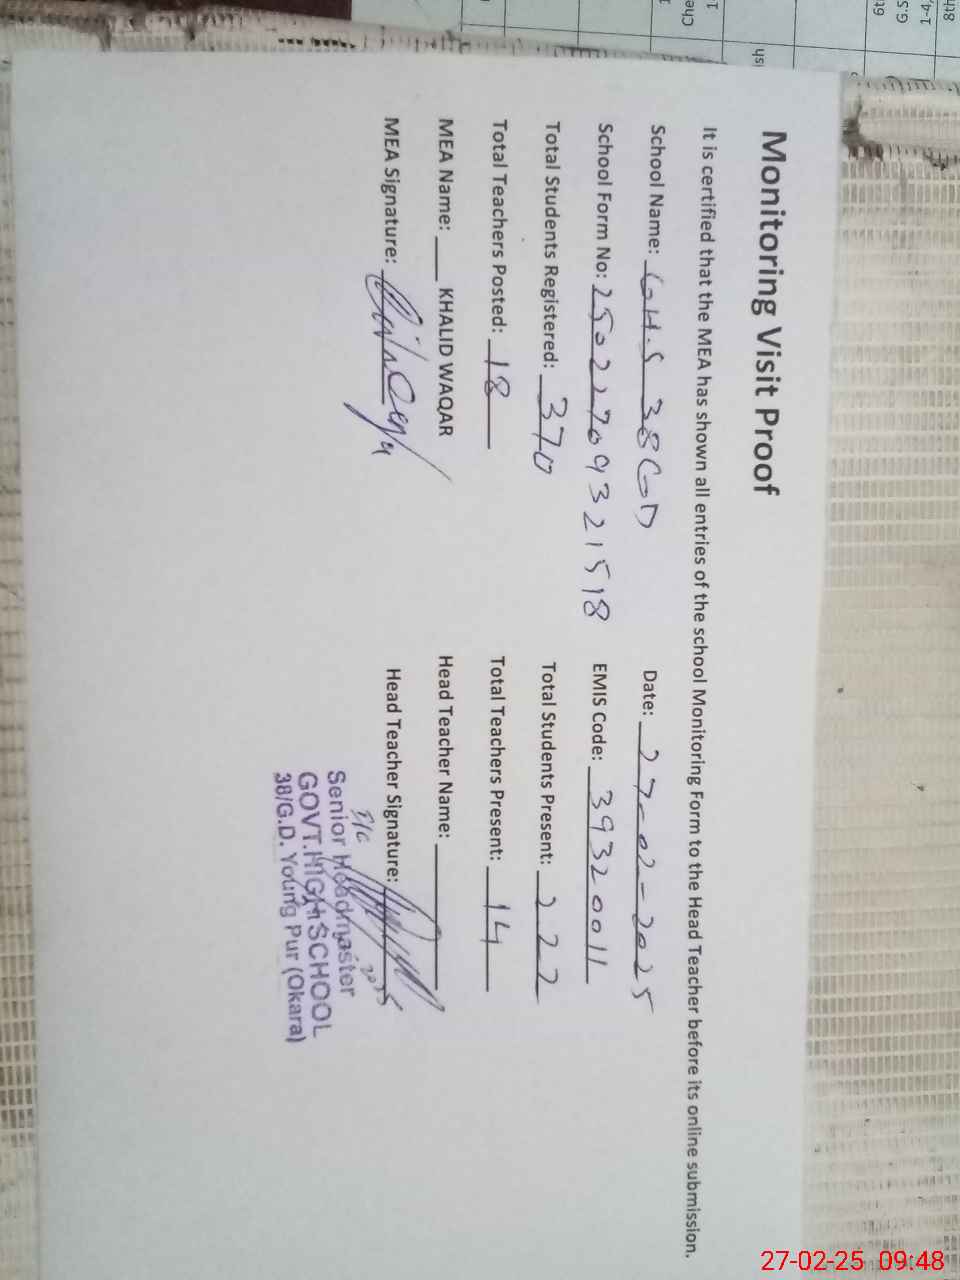 Monitoring Visit Proof
It is certified that the MEA has shown all entries of the school Monitoring Form to the Head Teacher before its online submission.
School Name: G.H.S 38GD Date: 27-02-2025
School Form No: 2502270932 1518 EMIS Code: 39320011
Total Students Registered: 370 Total Students Present: 222
Total Teachers Posted: 18 Total Teachers Present: 14
MEA Name: KHALID WAQAR Head Teacher Name:
MEA Signature: Head Teacher Signature:
Senior Headmaster
GOVT.HIGH SCHOOL
38/G.D. Young Pur (Okara)
27-02-25 09:48